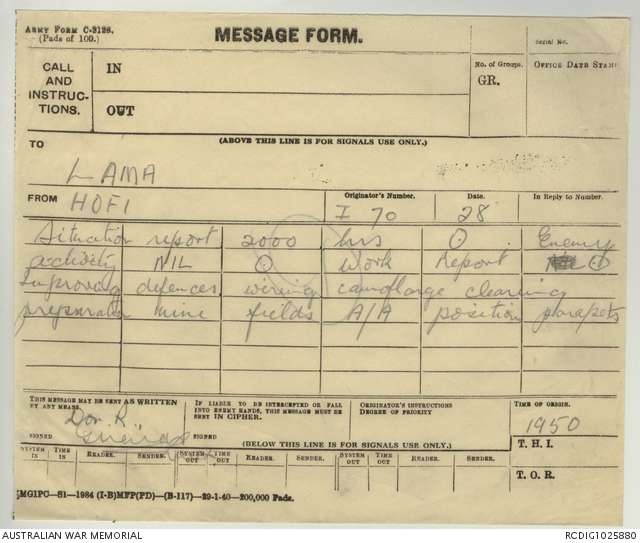 ARMY FORM C-2128.
(Pads of 100.)
MESSAGE FORM.
Serial No.
CALL AND INSTRUC-TIONS.
IN
OUT
No. of Groups.
GR.
OFFICE DATE STAMP
(ABOVE THIS LINE IS FOR SIGNALS USE ONLY.)
TO
LAMA
FROM
HOFI
Originator's Number.
I 70
Date.
28
In Reply to Number.
Situation report 2000 hrs O Enemy
activity NIL O Work report O
Improving defences wiring camoflarge clearing
preparation mine fields A/A position parapets
THIS MESSAGE MAY BE SENT AS WRITTEN BY ANY MEANS.
Don R
SIGNED
IF LIABLE TO BE INTERCEPTED OR FALL INTO ENEMY HANDS, THIS MESSAGE MUST BE SENT IN CIPHER.
SIGNED
ORIGINATOR'S INSTRUCTIONS
DEGREE OF PRIORITY
TIME OF ORIGIN.
1950
(BELOW THIS LINE IS FOR SIGNALS USE ONLY.)
T. H. I.
SYSTEM IN
TIME IN
READER.
SENDER.
SYSTEM OUT
TIME OUT
READER.
SENDER.
SYSTEM OUT
TIME OUT
READER.
SENDER.
T. O. R.
MGIPC—S1—1984 (I-B)MFP(PD)—(B-117)—29-1-40—200,000 Pads.
AUSTRALIAN WAR MEMORIAL
RCDIG1025880